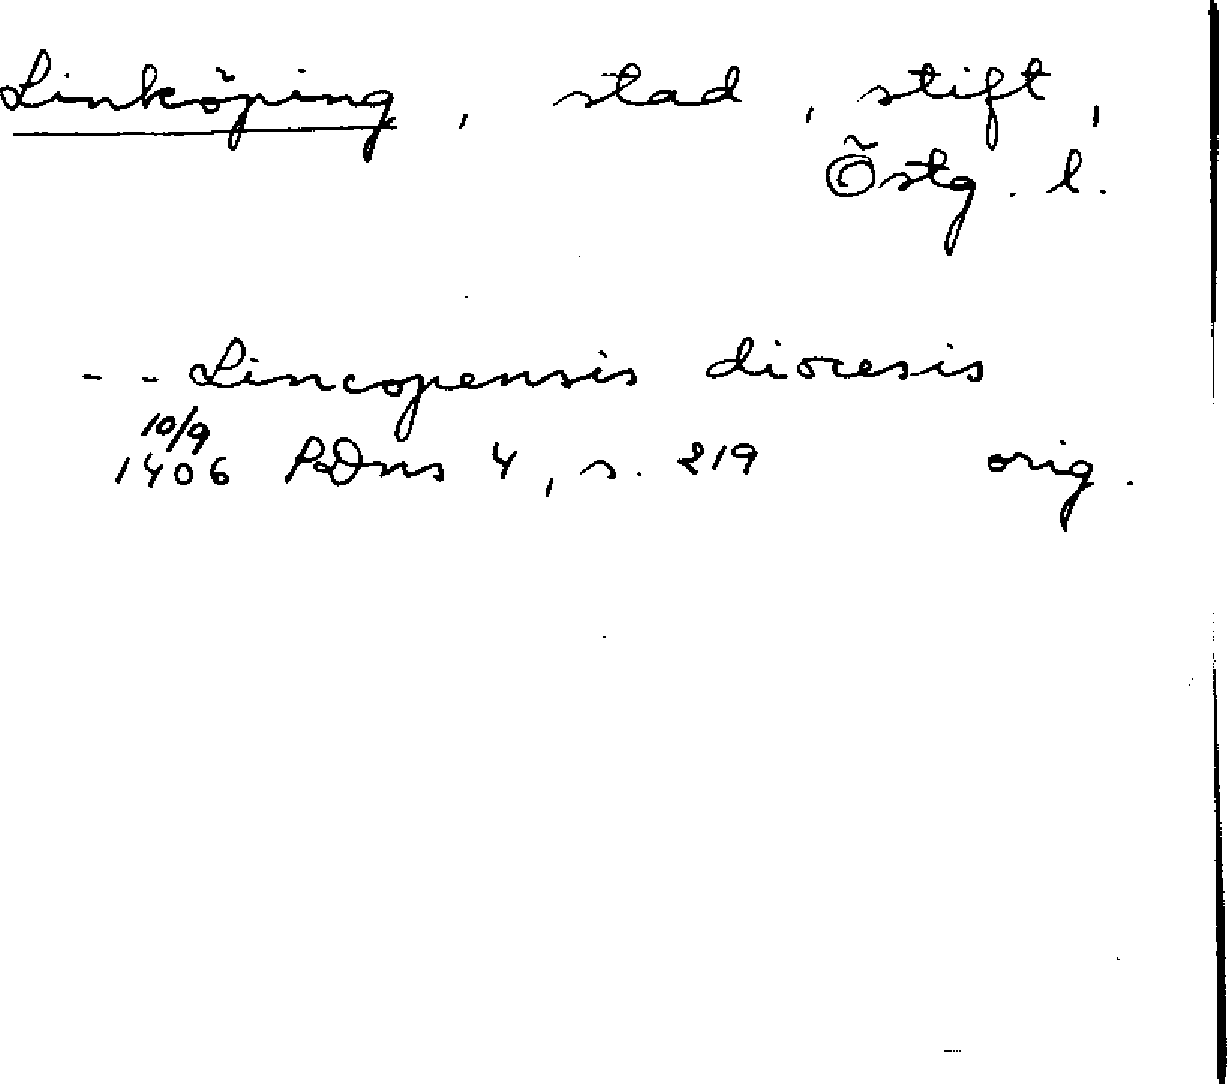 Linköping, stad, stift,
Östg. l.
- - Lincopensis diocesis
10/9
1406 RDns 4, s. 219 orig.